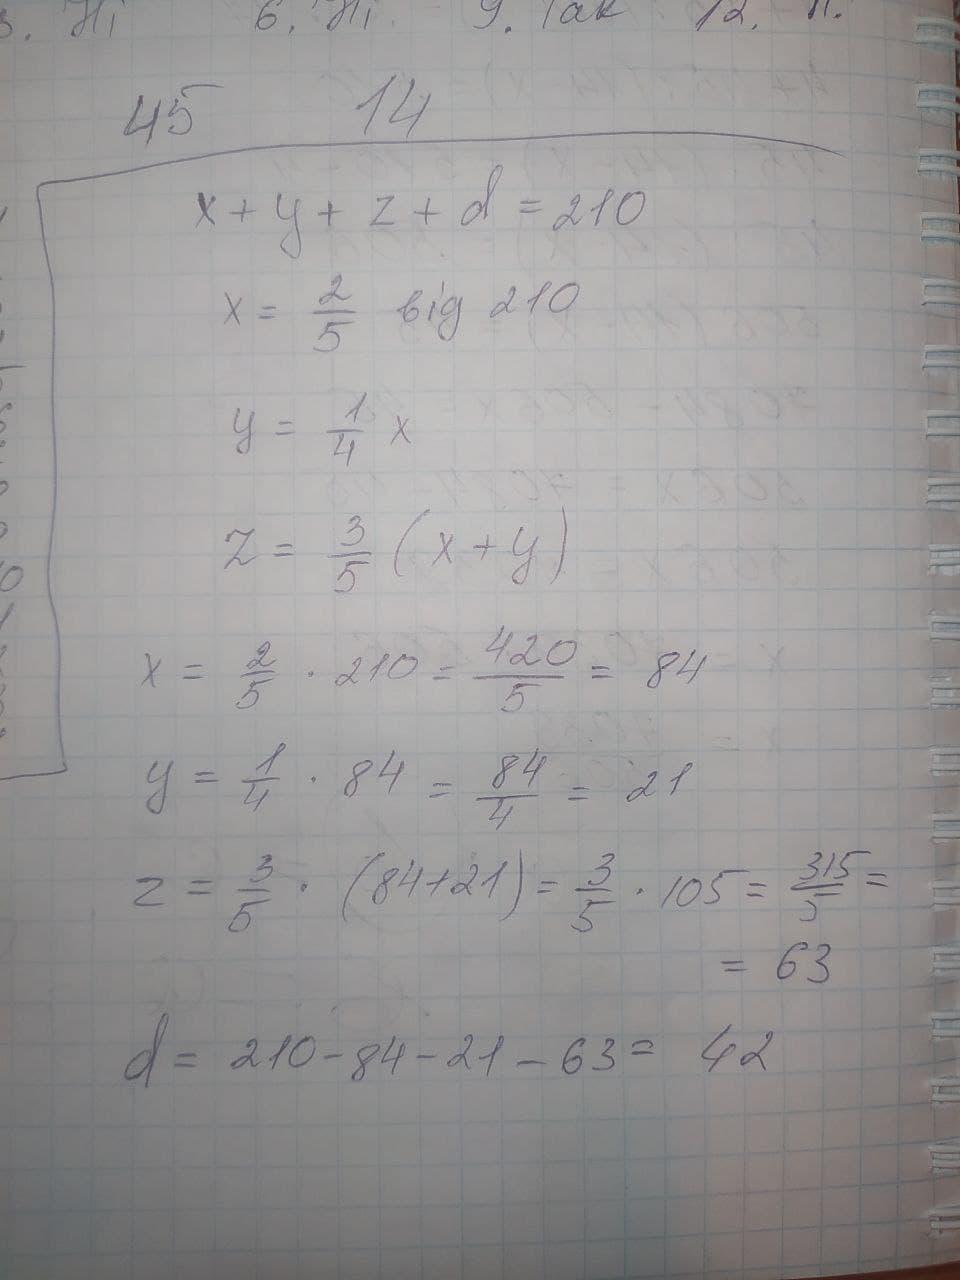 3. Ні 6. Ні 9. Так 12.
45 14
x + y + z + d = 210
x = 2/5 від 210
y = 1/4 x
z = 3/5 (x + y)
x = 2/5 · 210 = 420/5 = 84
y = 1/4 · 84 = 84/4 = 21
z = 3/5 · (84+21) = 3/5 · 105 = 315/5 =
= 63
d = 210 - 84 - 21 - 63 = 42